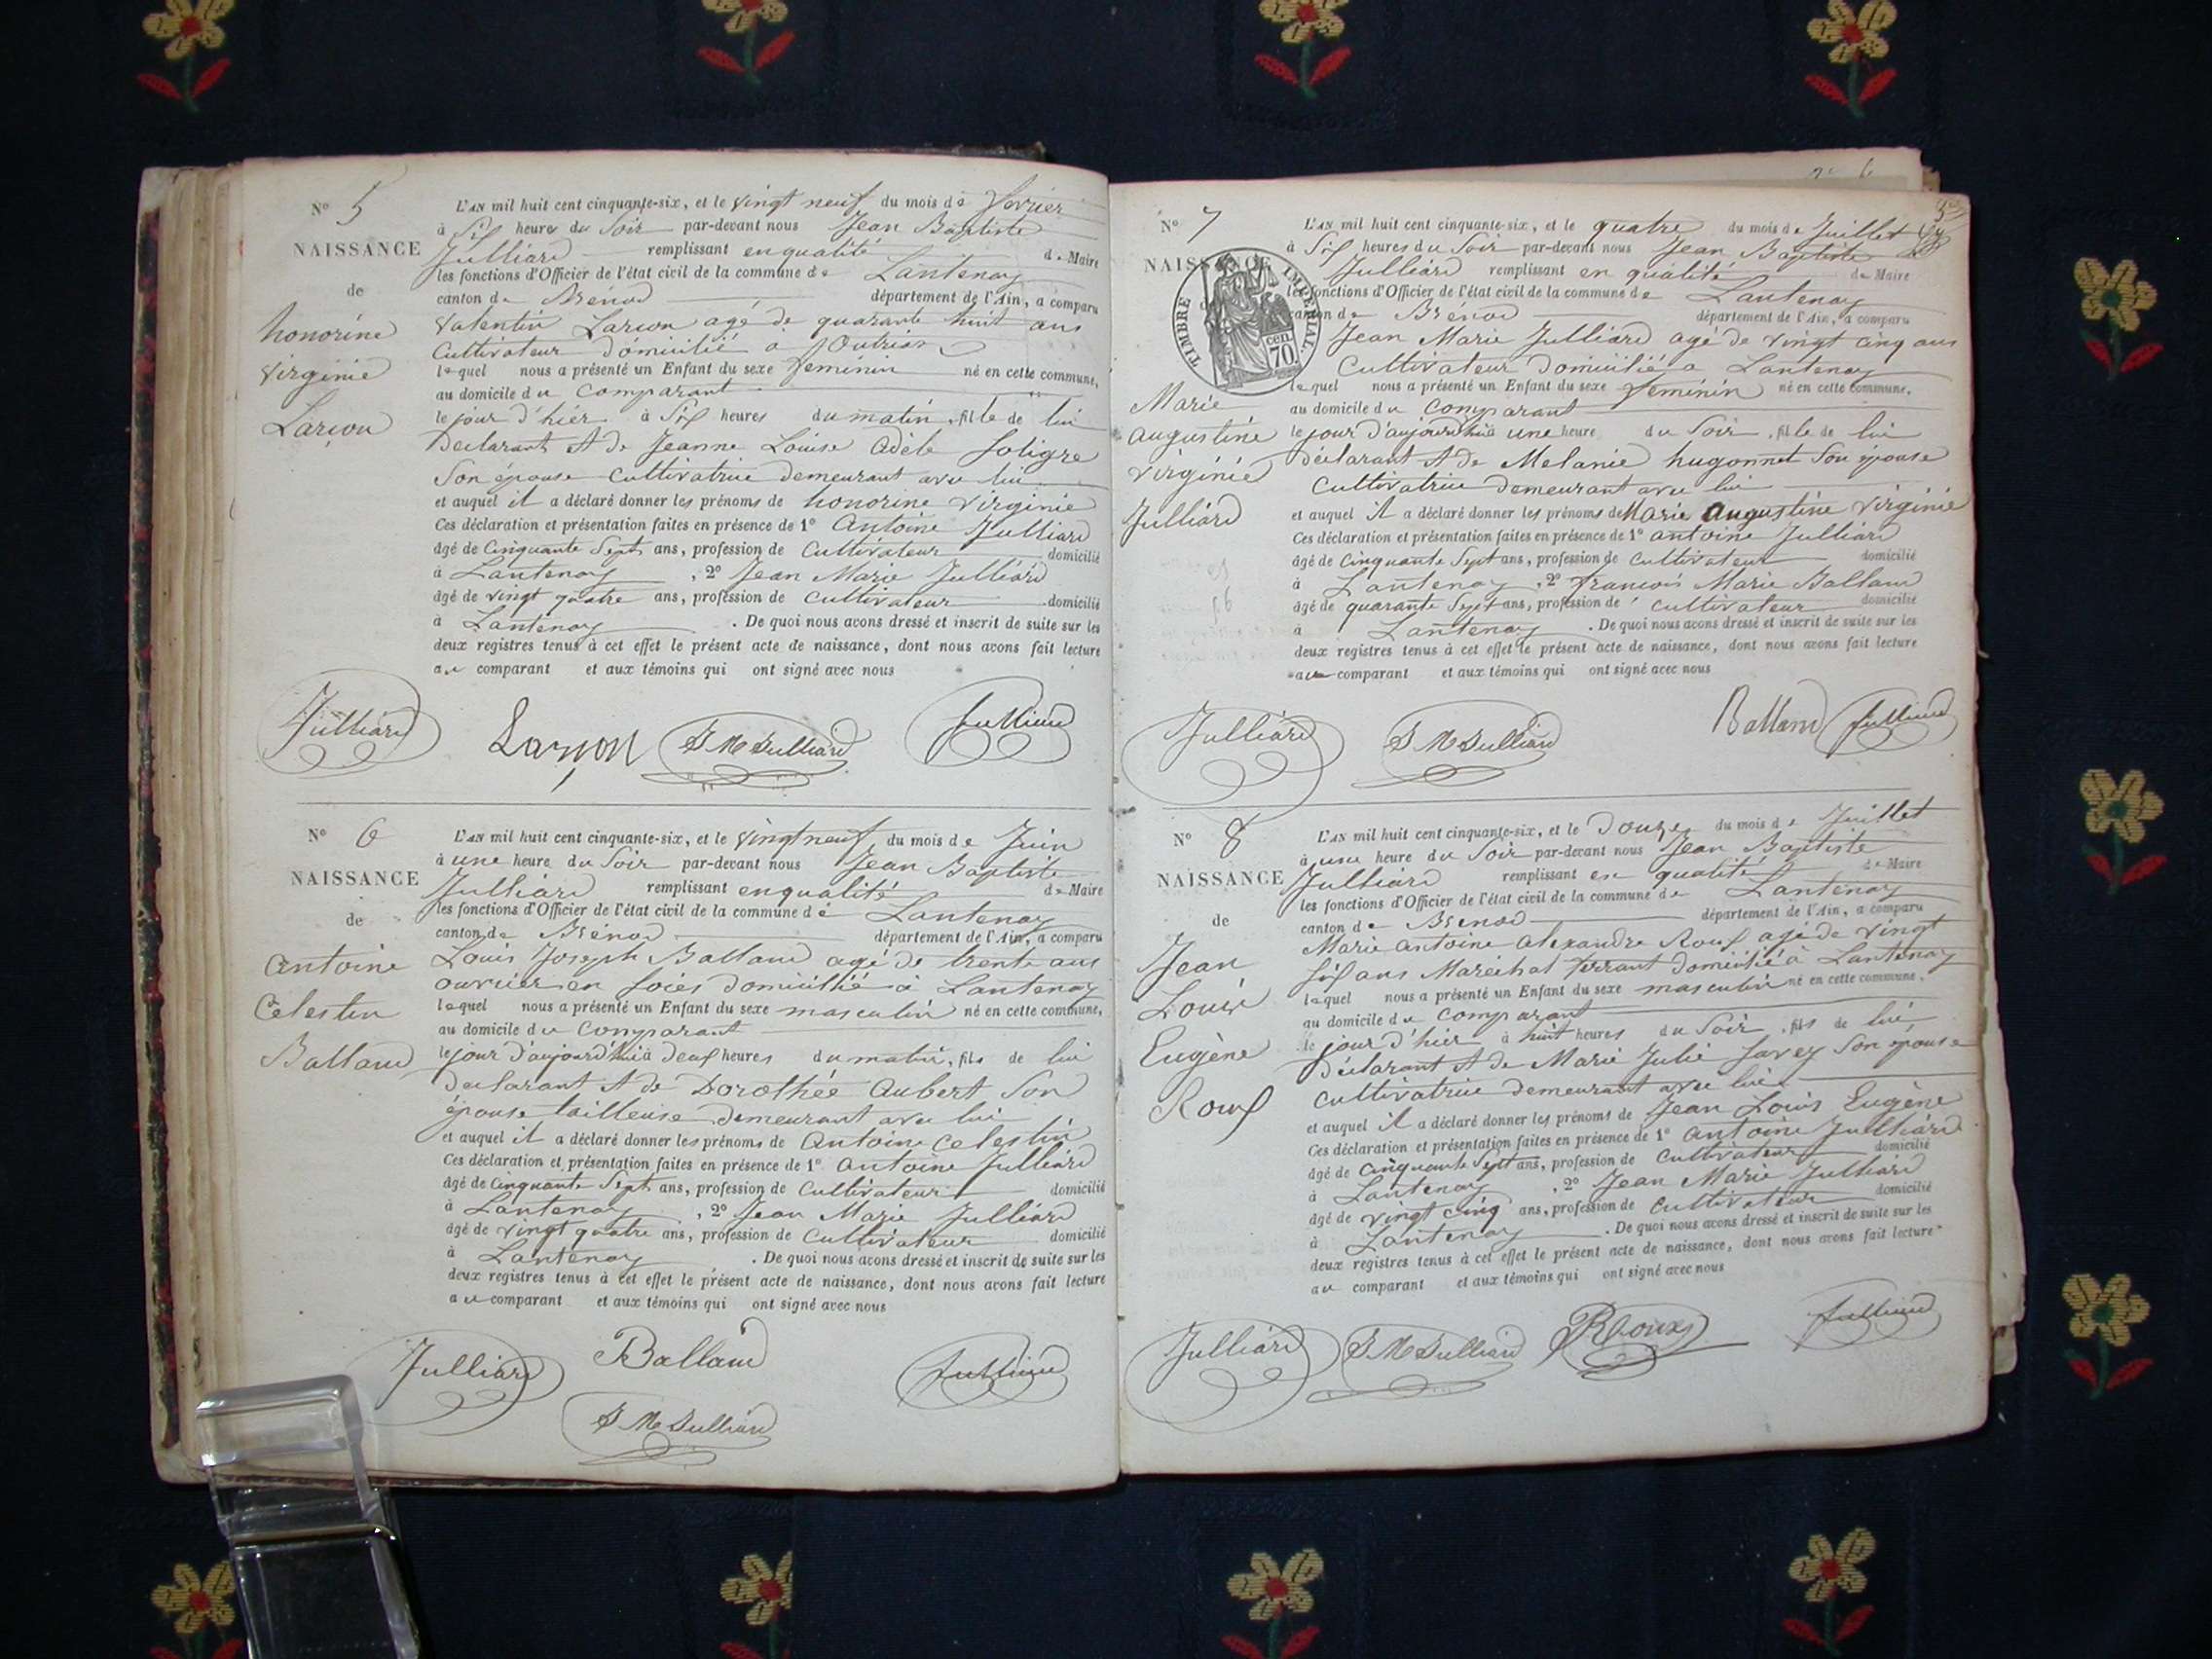 N° 5
NAISSANCE
de
honorine
Virginie
Larçon
L'AN mil huit cent cinquante-six, et le vingt neuf du mois de fevrier
à Six heures du Soir par-devant nous Jean Baptiste
Julliard remplissant en qualité de Maire
les fonctions d'Officier de l'état civil de la commune de Lantenay
canton de Brénod département de l'Ain, a comparu
Valentin Larçon agé de quarante huit ans
Cultivateur domicilié a
lequel nous a présenté un Enfant du sexe feminin né en cette commune,
au domicile du Comparant
le jour d'hier à Six heures du matin, fille de lui
Déclarant et de Jeanne Louise Adèle
Son épouse Cultivatrice demeurant avec lui
et auquel il a déclaré donner les prénoms de honorine Virginie
Ces déclaration et présentation faites en présence de 1° Antoine Julliard
âgé de Cinquante Sept ans, profession de Cultivateur domicilié
à Lantenay, 2° Jean Marie Julliard
âgé de vingt quatre ans, profession de cultivateur domicilié
à Lantenay. De quoi nous avons dressé et inscrit de suite sur les
deux registres tenus à cet effet le présent acte de naissance, dont nous avons fait lecture
au comparant et aux témoins qui ont signé avec nous
Julliard Larçon J M Julliard Julliard
N° 6
NAISSANCE
de
Antoine
Celestin
Balland
L'AN mil huit cent cinquante-six, et le Vingt neuf du mois de Juin
à une heure du Soir par-devant nous Jean Baptiste
Julliard remplissant en qualité de Maire
les fonctions d'Officier de l'état civil de la commune de Lantenay
canton de Brénod département de l'Ain, a comparu
Louis Joseph Balland agé de trente ans
ouvrier en soies domicilié à Lantenay
lequel nous a présenté un Enfant du sexe masculin né en cette commune,
au domicile du Comparant
le jour d'aujourd'hui à deux heures du matin, fils de lui
Déclarant et de Dorothée Aubert Son
épouse tailleuse demeurant avec lui
et auquel il a déclaré donner les prénoms de Antoine Celestin
Ces déclaration et présentation faites en présence de 1° Antoine Julliard
âgé de Cinquante Sept ans, profession de Cultivateur domicilié
à Lantenay, 2° Jean Marie Julliard
âgé de vingt quatre ans, profession de Cultivateur domicilié
à Lantenay. De quoi nous avons dressé et inscrit de suite sur les
deux registres tenus à cet effet le présent acte de naissance, dont nous avons fait lecture
au comparant et aux témoins qui ont signé avec nous
Julliard Balland Julliard
J M Julliard
N° 7
NAISSANCE
TIMBRE IMPÉRIAL
cen.
70
Marie
Augustine
Virginie
Julliard
L'AN mil huit cent cinquante-six, et le quatre du mois de Juillet
à Six heures du Soir par-devant nous Jean Baptiste
Julliard remplissant en qualité de Maire
les fonctions d'Officier de l'état civil de la commune de Lantenay
canton de Brénod département de l'Ain, a comparu
Jean Marie Julliard agé de vingt cinq ans
Cultivateur Domicilié a Lantenay
lequel nous a présenté un Enfant du sexe feminin né en cette commune,
au domicile du Comparant
le jour d'aujourd'hui à une heure du Soir, fille de lui
déclarant et de Melanie hugonnet Son épouse
Cultivatrice demeurant avec lui
et auquel il a déclaré donner les prénoms de Marie Augustine Virginie
Ces déclaration et présentation faites en présence de 1° Antoine Julliard
âgé de cinquante Sept ans, profession de cultivateur domicilié
à Lantenay, 2° françois Marie Balland
âgé de quarante Sept ans, profession de cultivateur domicilié
à Lantenay. De quoi nous avons dressé et inscrit de suite sur les
deux registres tenus à cet effet le présent acte de naissance, dont nous avons fait lecture
au comparant et aux témoins qui ont signé avec nous
Julliard J M Julliard Balland Julliard
N° 8
NAISSANCE
de
Jean
Louis
Eugène
Roux
L'AN mil huit cent cinquante-six, et le Douze du mois de Juillet
à une heure du Soir par-devant nous Jean Baptiste
Julliard remplissant en qualité de Maire
les fonctions d'Officier de l'état civil de la commune de Lantenay
canton de Brenod département de l'Ain, a comparu
Marie Antoine Alexandre Roux agé de vingt
six ans Maréchal ferrant domicilié à Lantenay
lequel nous a présenté un Enfant du sexe masculin né en cette commune,
au domicile du Comparant
le jour d'hier à huit heures du Soir, fils de lui
déclarant et de Marie Julie Savey Son épouse
Cultivatrice demeurant avec lui
et auquel il a déclaré donner les prénoms de Jean Louis Eugène
Ces déclaration et présentation faites en présence de 1° Antoine Julliard
âgé de Cinquante Sept ans, profession de Cultivateur domicilié
à Lantenay, 2° Jean Marie Julliard
âgé de vingt cinq ans, profession de Cultivateur domicilié
à Lantenay. De quoi nous avons dressé et inscrit de suite sur les
deux registres tenus à cet effet le présent acte de naissance, dont nous avons fait lecture
au comparant et aux témoins qui ont signé avec nous
Julliard J M Julliard Roux Julliard